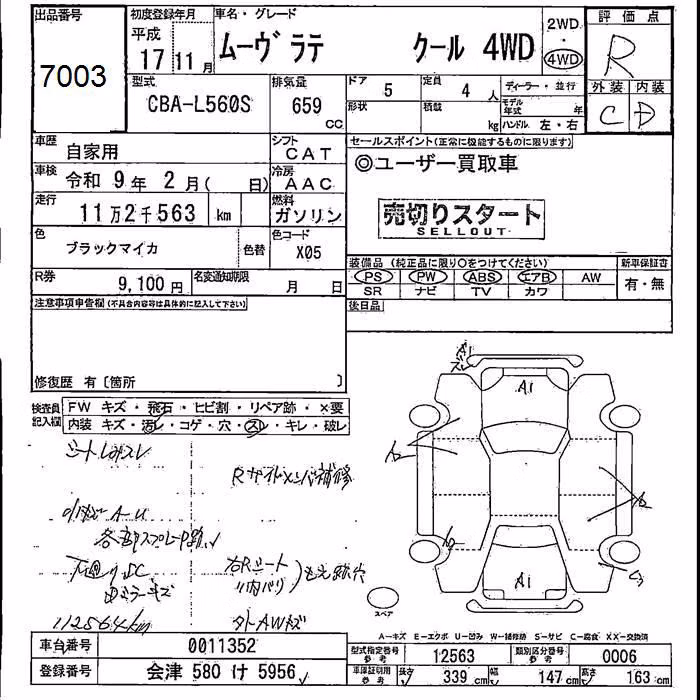 出品番号
7003
初度登録年月
平成
17 11 月
車名・グレード
ムーヴ ラテ クール 4WD
2WD
・
4WD
評価点
R
外装 内装
C D
型式
CBA-L560S
排気量
659
CC
ドア
5
定員
4 人
形状
積載
kg
ディーラー・並行
モデル年式 年
ハンドル 左・右
車歴
自家用
シフト
CAT
車検
令和 9 年 2 月( 日)
冷房
AAC
走行
11万2千563 km
燃料
ガソリン
色
ブラックマイカ
色替
色コード
X05
R券
9,100 円
名変通知期限
月 日
セールスポイント(正常に機能するものに限ります)
◎ユーザー買取車
売切りスタート
SELLOUT
装備品 (純正品に限り○をつけてください)
PS PW ABS エアB AW
SR ナビ TV カワ
新車保証書
有・無
後日品
注意事項申告欄(不具合内容等は具体的に記入して下さい)
修復歴 有〔箇所 〕
検査員記入欄
FW キズ・飛石・ヒビ割・リペア跡・×要
内装 キズ・汚レ・コゲ・穴・スレ・キレ・破レ
Rサイドメンバ補修
A-U
各部スプレー跡
下廻りSC
ミラーキズ
右Rシート
内バリ
112564km
タトAWキズ
A1
A1
A1
スレ
スペア
A-キズ E-エクボ U-凹み W-補修跡 S-サビ C-腐食 XX-交換済
車台番号
0011352
登録番号
会津 580 け 5956
型式指定番号
参考
12563
類別区分番号
参考
0006
車庫証明用
参考
長さ 339 cm
幅 147 cm
高さ 163 cm